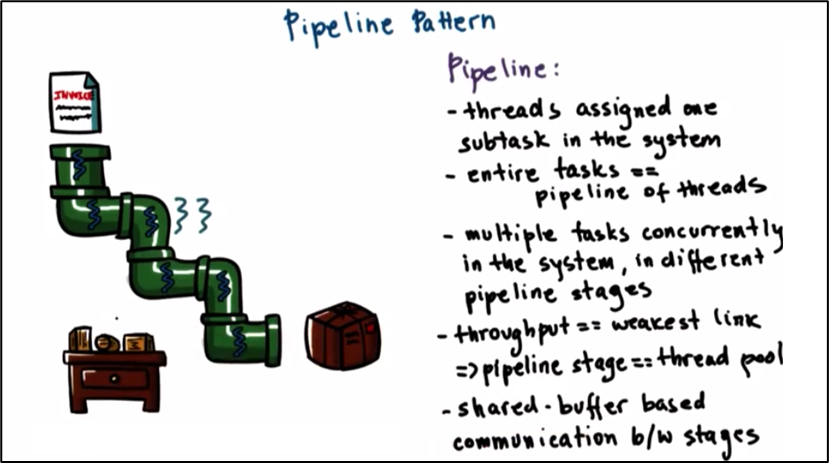 Pipeline Pattern
INVOICE
Pipeline:
- threads assigned one
subtask in the system
- entire tasks ==
pipeline of threads
- multiple tasks concurrently
in the system, in different
pipeline stages
- throughput == weakest link
=> pipeline stage == thread pool
- shared-buffer based
communication b/w stages